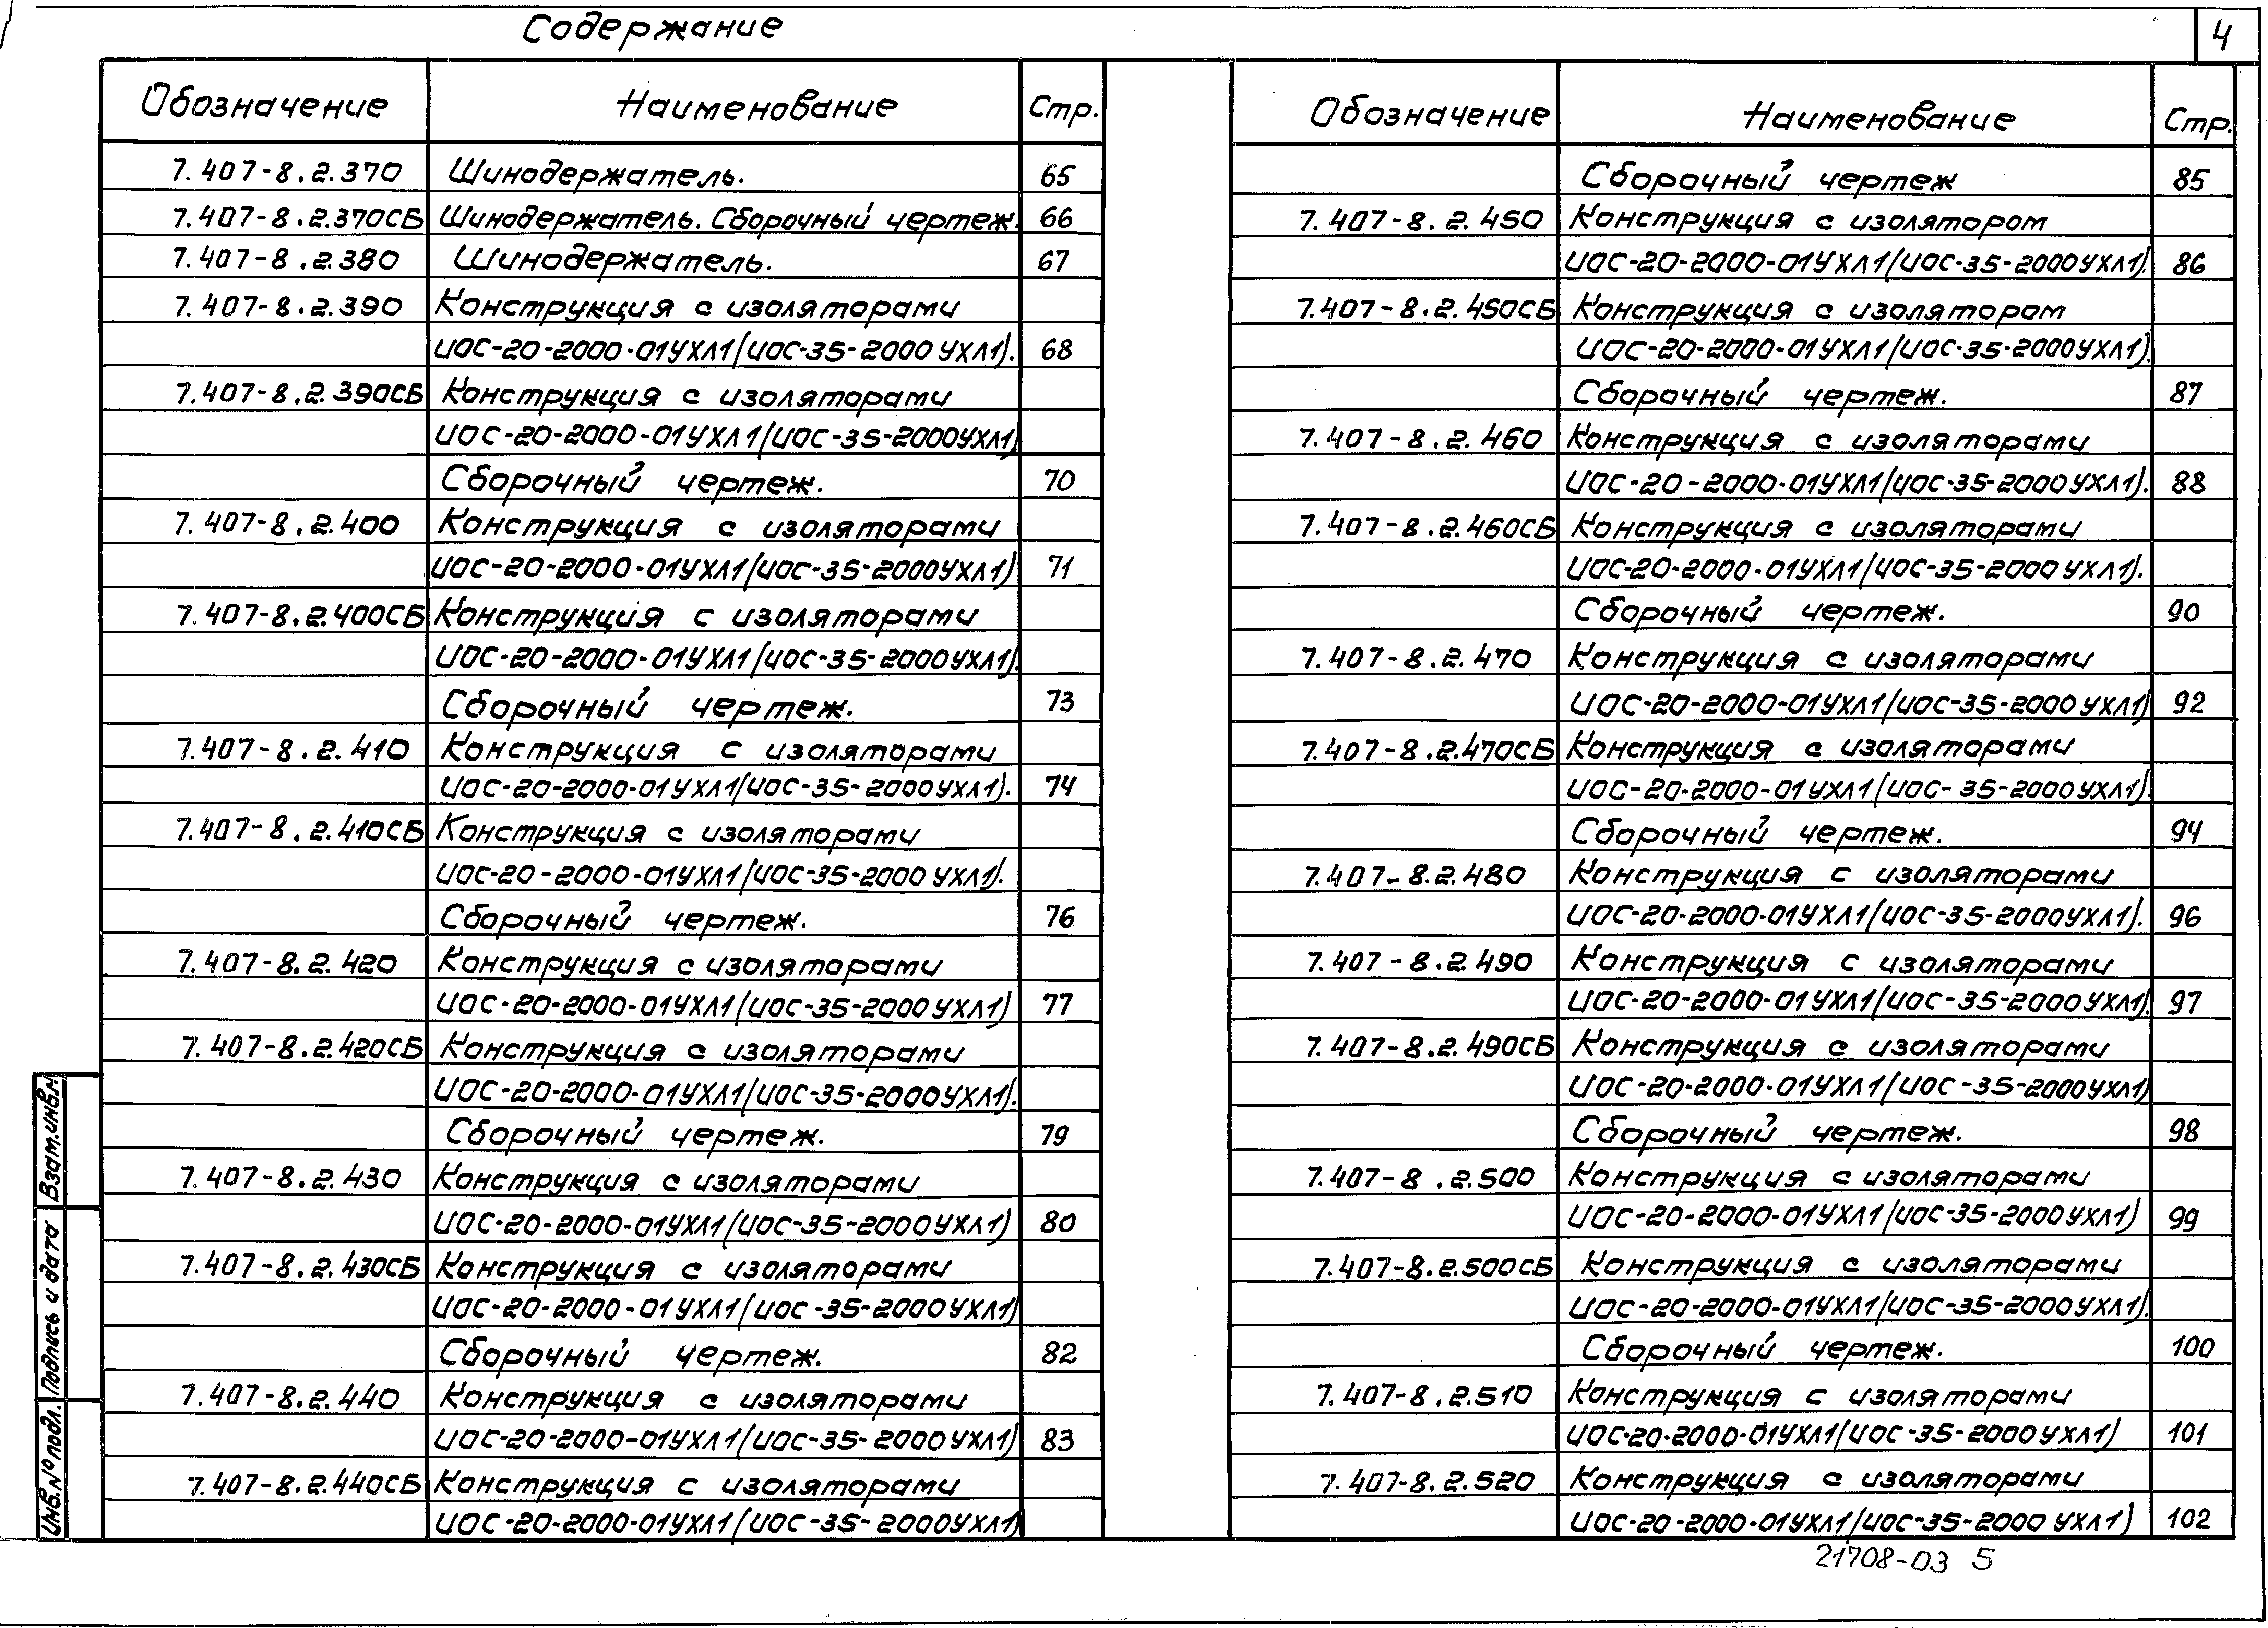 Содержание
4
Обозначение Наименование Стр.
7.407-8.2.370 Шинодержатель. 65
7.407-8.2.370СБ Шинодержатель. Сборочный чертеж. 66
7.407-8.2.380 Шинодержатель. 67
7.407-8.2.390 Конструкция с изоляторами
ИОС-20-2000-01УХЛ1/ИОС-35-2000 УХЛ1). 68
7.407-8.2.390СБ Конструкция с изоляторами
ИОС-20-2000-01УХЛ1/ИОС-35-2000УХЛ1)
Сборочный чертеж. 70
7.407-8.2.400 Конструкция с изоляторами
ИОС-20-2000-01УХЛ1/ИОС-35-2000УХЛ1) 71
7.407-8.2.400СБ Конструкция с изоляторами
ИОС-20-2000-01УХЛ1/ИОС-35-2000УХЛ1).
Сборочный чертеж. 73
7.407-8.2.410 Конструкция с изоляторами
ИОС-20-2000-01УХЛ1/ИОС-35-2000УХЛ1). 74
7.407-8.2.410СБ Конструкция с изоляторами
ИОС-20-2000-01УХЛ1/ИОС-35-2000 УХЛ1).
Сборочный чертеж. 76
7.407-8.2.420 Конструкция с изоляторами
ИОС-20-2000-01УХЛ1/ИОС-35-2000 УХЛ1) 77
7.407-8.2.420СБ Конструкция с изоляторами
ИОС-20-2000-01УХЛ1/ИОС-35-2000УХЛ1).
Сборочный чертеж. 79
7.407-8.2.430 Конструкция с изоляторами
ИОС-20-2000-01УХЛ1/ИОС-35-2000УХЛ1) 80
7.407-8.2.430СБ Конструкция с изоляторами
ИОС-20-2000-01УХЛ1/ИОС-35-2000УХЛ1)
Сборочный чертеж. 82
7.407-8.2.440 Конструкция с изоляторами
ИОС-20-2000-01УХЛ1/ИОС-35-2000УХЛ1) 83
7.407-8.2.440СБ Конструкция с изоляторами
ИОС-20-2000-01УХЛ1/ИОС-35-2000УХЛ1)
Обозначение Наименование Стр.
Сборочный чертеж 85
7.407-8.2.450 Конструкция с изолятором
ИОС-20-2000-01УХЛ1/ИОС-35-2000УХЛ1). 86
7.407-8.2.450СБ Конструкция с изолятором
ИОС-20-2000-01УХЛ1/ИОС-35-2000УХЛ1).
Сборочный чертеж. 87
7.407-8.2.460 Конструкция с изоляторами
ИОС-20-2000-01УХЛ1/ИОС-35-2000УХЛ1). 88
7.407-8.2.460СБ Конструкция с изоляторами
ИОС-20-2000-01УХЛ1/ИОС-35-2000УХЛ1).
Сборочный чертеж. 90
7.407-8.2.470 Конструкция с изоляторами
ИОС-20-2000-01УХЛ1/ИОС-35-2000УХЛ1) 92
7.407-8.2.470СБ Конструкция с изоляторами
ИОС-20-2000-01УХЛ1/ИОС-35-2000УХЛ1).
Сборочный чертеж. 94
7.407-8.2.480 Конструкция с изоляторами
ИОС-20-2000-01УХЛ1/ИОС-35-2000УХЛ1). 96
7.407-8.2.490 Конструкция с изоляторами
ИОС-20-2000-01УХЛ1/ИОС-35-2000УХЛ1). 97
7.407-8.2.490СБ Конструкция с изоляторами
ИОС-20-2000-01УХЛ1/ИОС-35-2000УХЛ1)
Сборочный чертеж. 98
7.407-8.2.500 Конструкция с изоляторами
ИОС-20-2000-01УХЛ1/ИОС-35-2000УХЛ1) 99
7.407-8.2.500СБ Конструкция с изоляторами
ИОС-20-2000-01УХЛ1/ИОС-35-2000УХЛ1).
Сборочный чертеж. 100
7.407-8.2.510 Конструкция с изоляторами
ИОС-20-2000-01УХЛ1/ИОС-35-2000УХЛ1) 101
7.407-8.2.520 Конструкция с изоляторами
ИОС-20-2000-01УХЛ1/ИОС-35-2000 УХЛ1) 102
Взам.инв.N
Подпись и дата
Инв.№ подл.
21708-03 5